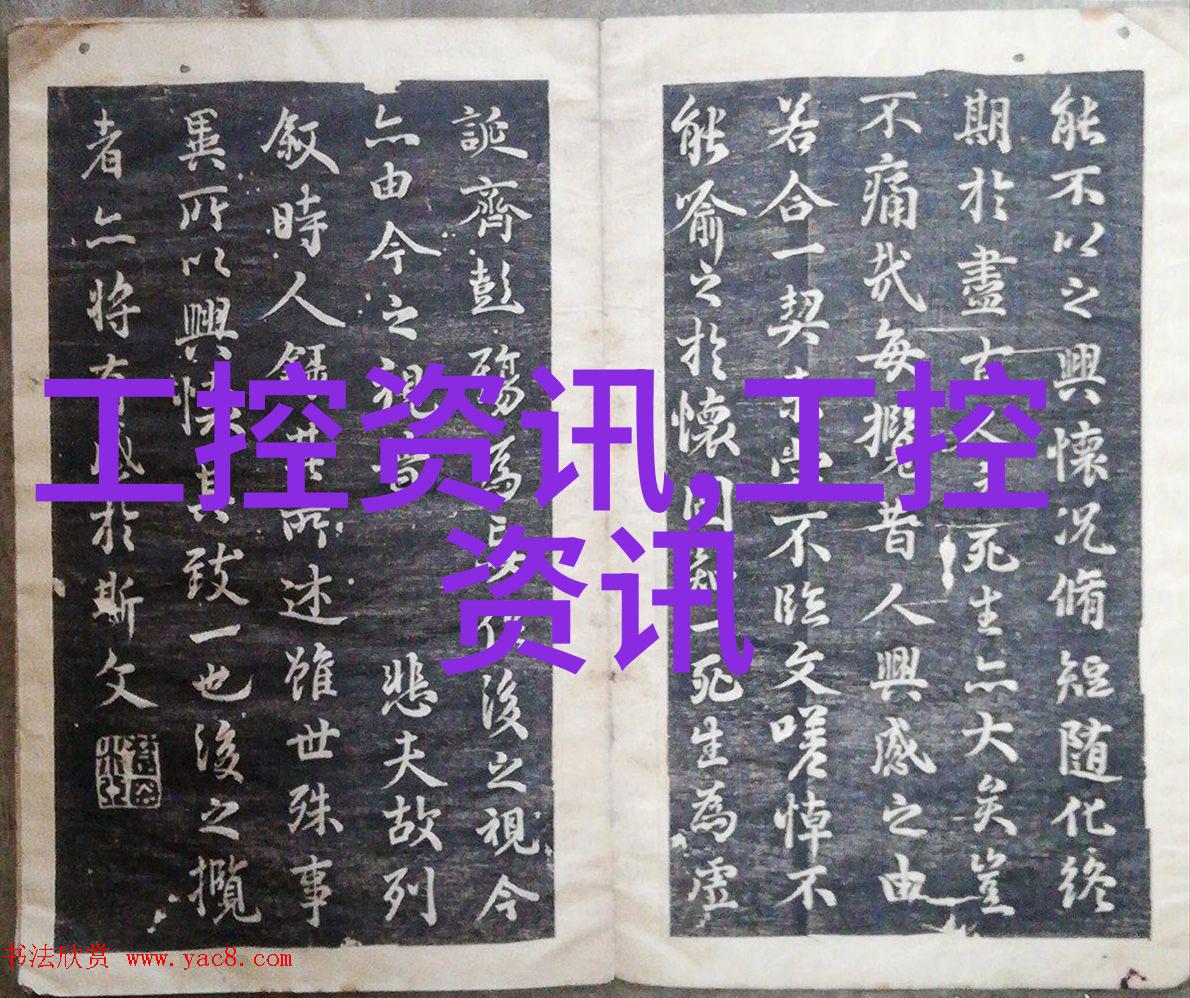 能不以之興懷況脩短随化終
期於盡古死生亦大矣豈
不痛哉每攬昔人興感之由
若合一契不臨文嗟悼不
能喻之於懷固一死生為虛
誕齊彭殤為後之視今
亦由今之視昔悲夫故列
敘時人錄其所述雖世殊事
異所以興懷其致一也後之攬
者亦將有感於斯文
工控资讯,工控
资讯
书法欣赏 www.yac8.com